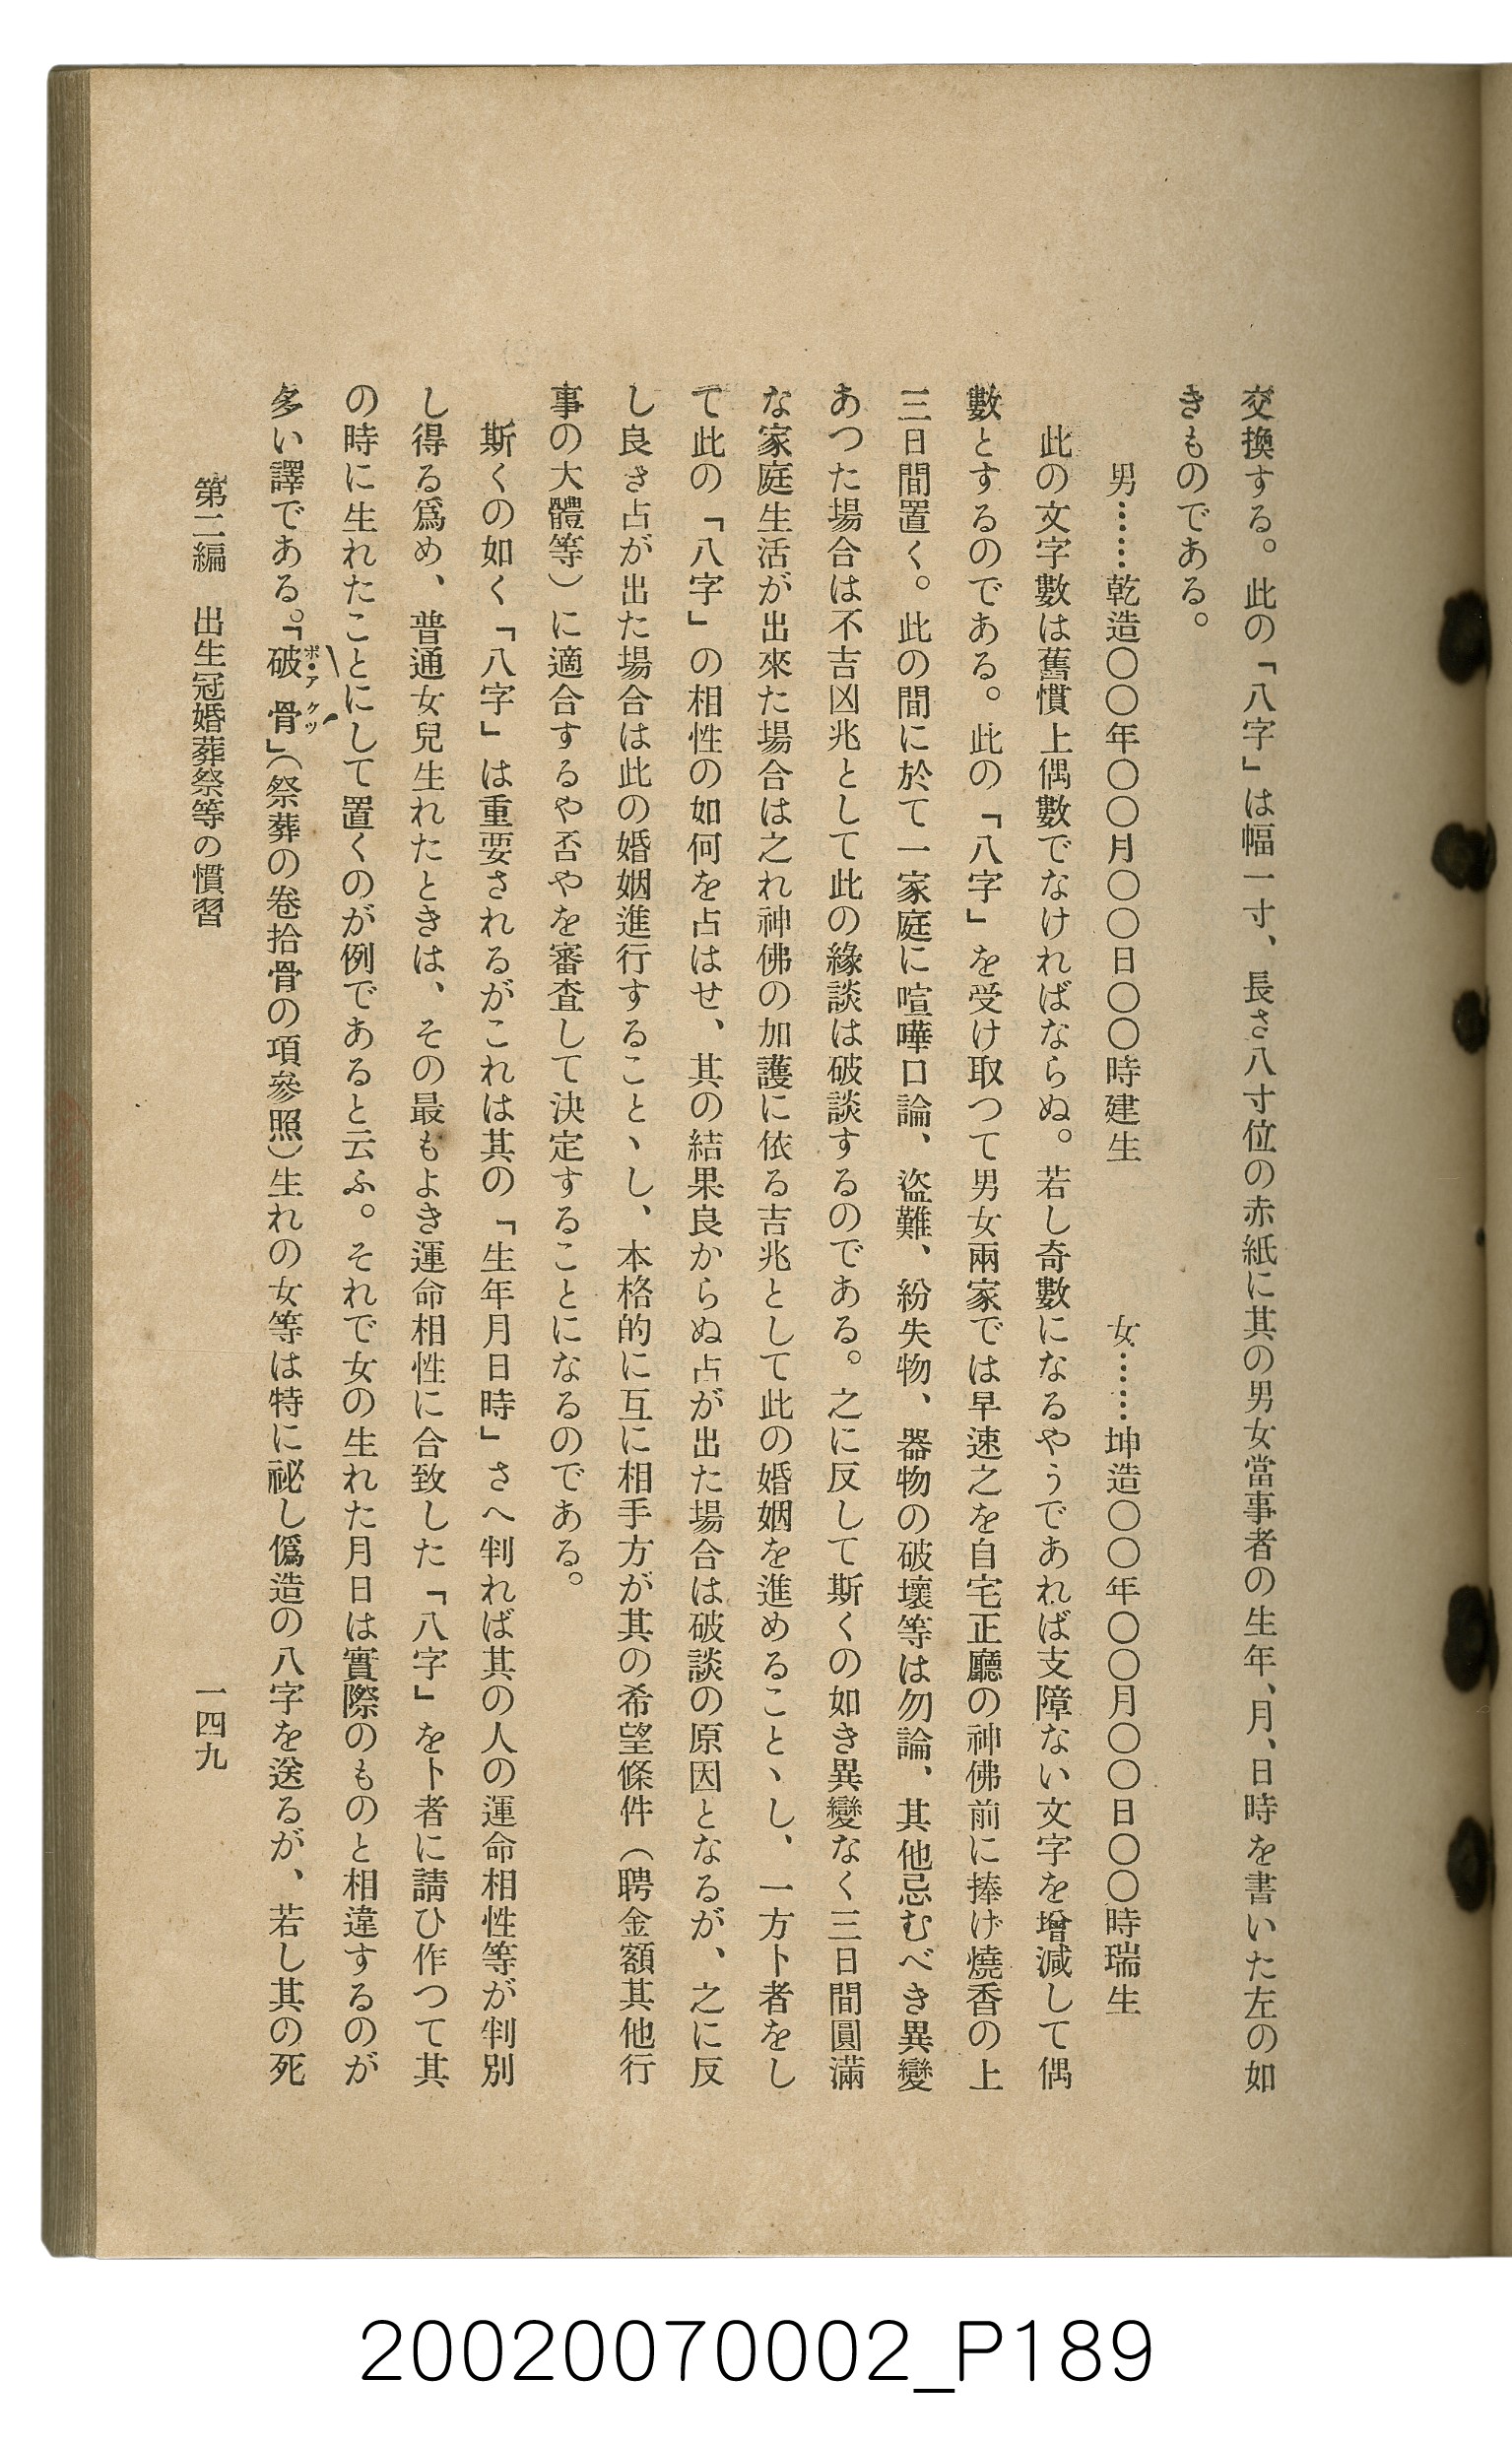 交換する。此の「八字」は幅一寸、長さ八寸位の赤紙に其の男女當事者の生年、月、日時を書いた左の如
きものである。
男……乾造〇〇年〇〇月〇〇日〇〇時建生　　　女……坤造〇〇年〇〇月〇〇日〇〇時瑞生
此の文字數は舊慣上偶數でなければならぬ。若し奇數になるやうであれば支障ない文字を增減して偶
數とするのである。此の「八字」を受け取つて男女兩家では早速之を自宅正廳の神佛前に捧げ燒香の上
三日間置く。此の間に於て一家庭に喧嘩口論、盜難、紛失物、器物の破壞等は勿論、其他忌むべき異變
あつた場合は不吉凶兆として此の緣談は破談するのである。之に反して斯くの如き異變なく三日間圓滿
な家庭生活が出來た場合は之れ神佛の加護に依る吉兆として此の婚姻を進めることヽし、一方卜者をし
て此の「八字」の相性の如何を占はせ、其の結果良からぬ占が出た場合は破談の原因となるが、之に反
し良き占が出た場合は此の婚姻進行することヽし、本格的に互に相手方が其の希望條件（聘金額其他行
事の大體等）に適合するや否やを審査して決定することになるのである。
斯くの如く「八字」は重要されるがこれは其の「生年月日時」さへ判れば其の人の運命相性等が判別
し得る爲め、普通女兒生れたときは、その最もよき運命相性に合致した「八字」を卜者に請ひ作つて其
の時に生れたことにして置くのが例であると云ふ。それで女の生れた月日は實際のものと相違するのが
多い譯である。「破骨」（祭葬の卷拾骨の項參照）生れの女等は特に祕し僞造の八字を送るが、若し其の死
ポ・アケツ
第二編　出生冠婚葬祭等の慣習　　　一四九
20020070002_P189